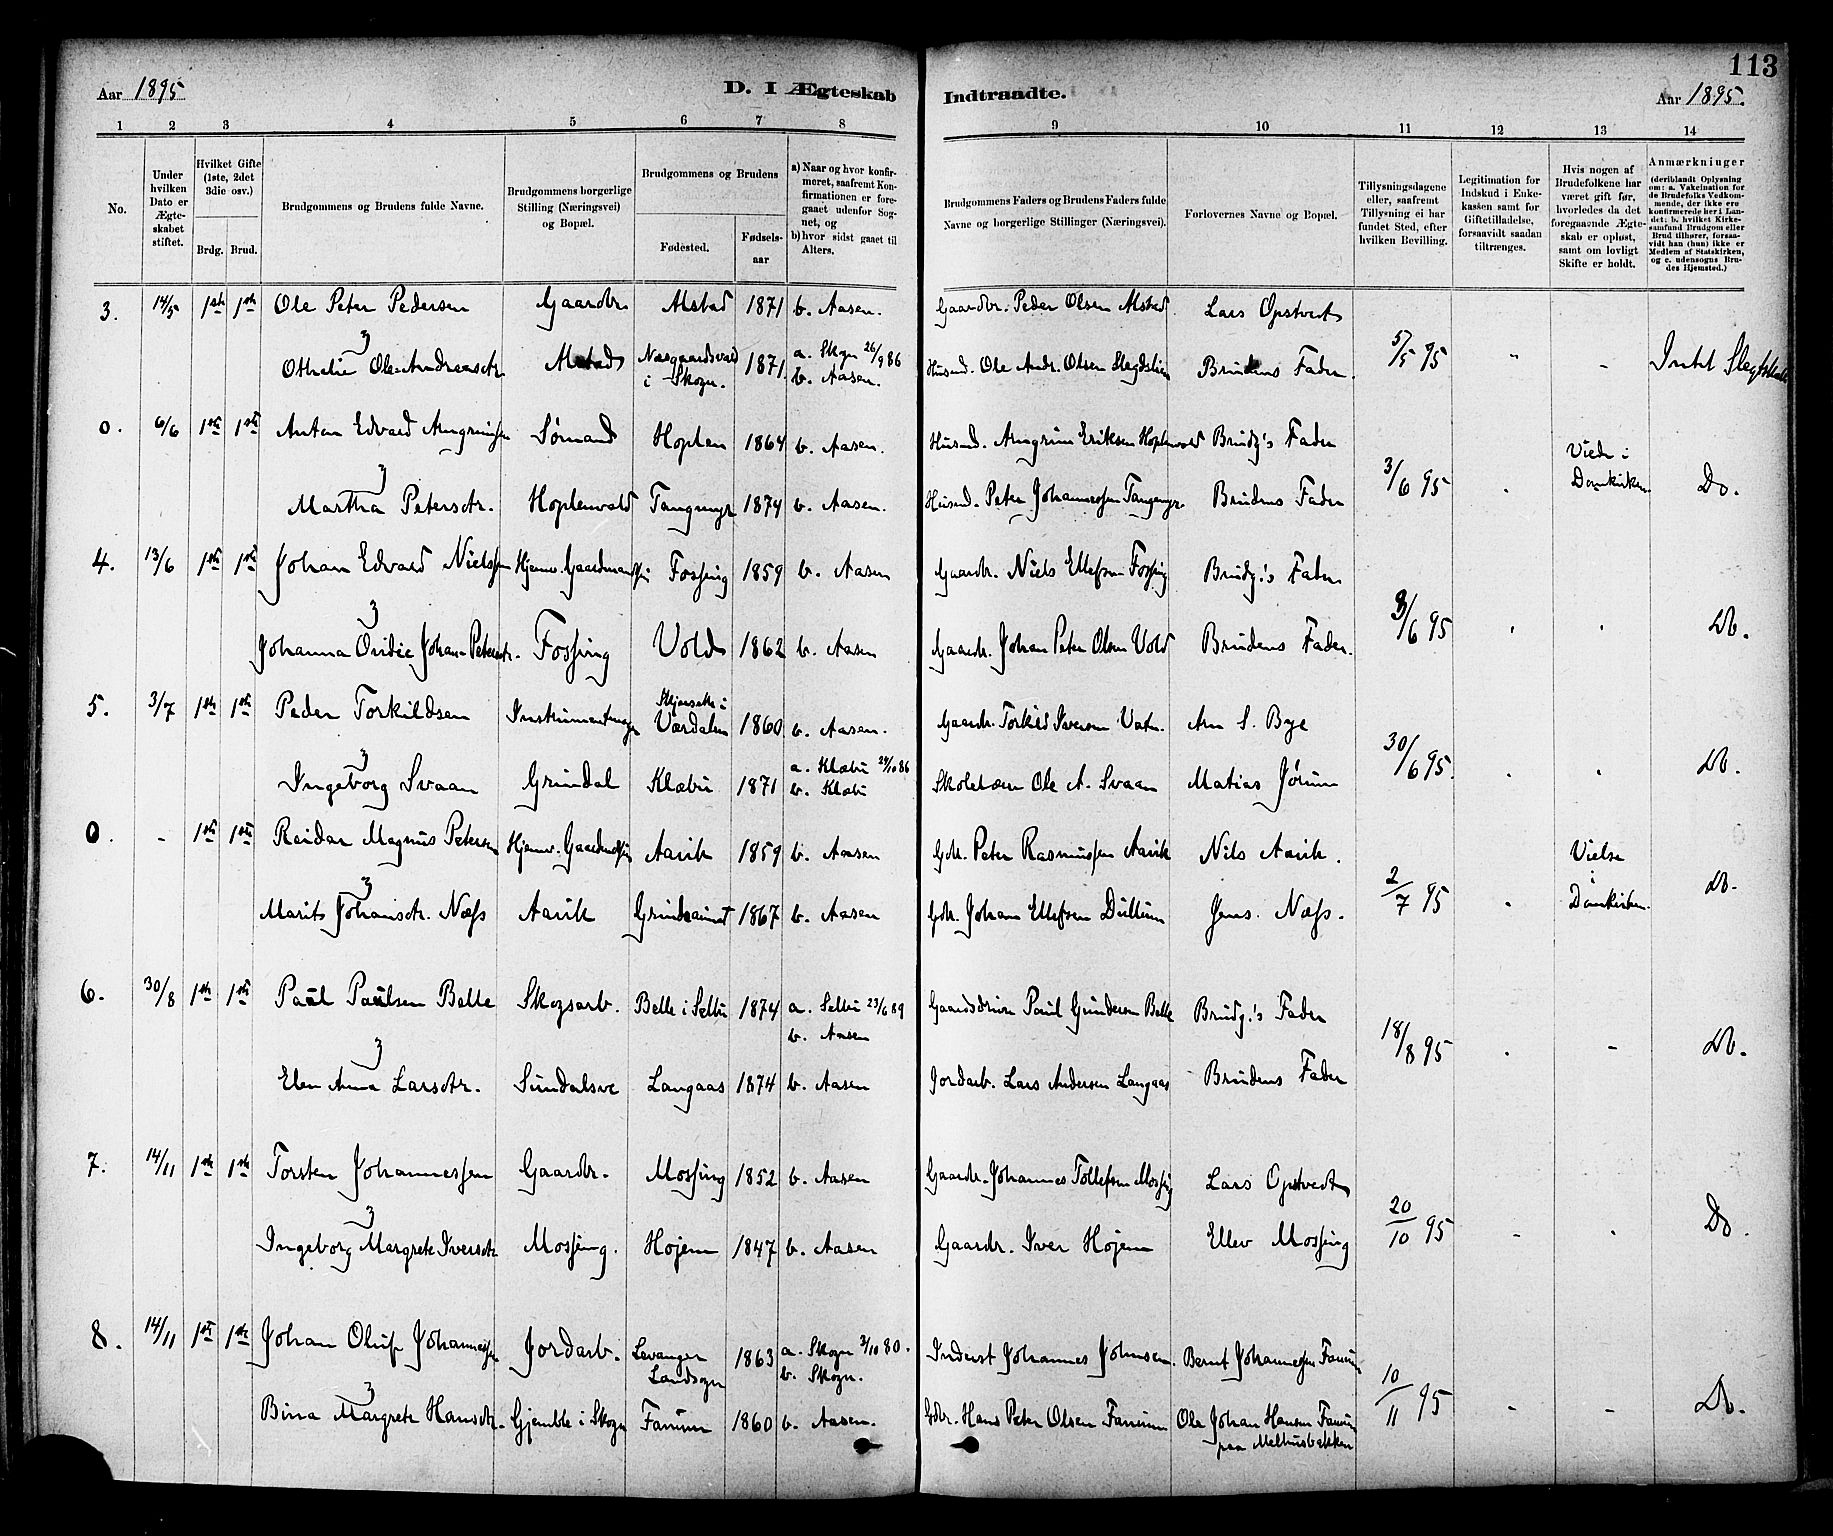 113
Aar 1895
D. I Ægteskab Indtraadte.
Aar 1895.
1 2 3 4 5 6 7 8 9 10 11 12 13 14
No.
Under hvilken Dato er Ægteskabet stiftet.
Hvilket Gifte (1ste, 2det 3die osv.)
Brdg. Brud.
Brudgommens og Brudens fulde Navne.
Brudgommens borgerlige Stilling (Næringsvei) og Bopæl.
Brudgommens og Brudens
Fødested. Fødselsaar
a) Naar og hvor konfirmeret, saafremt Konfirmationen er foregaaet udenfor Sognet, og
b) hvor sidst gaaet til Alters.
Brudgommens Faders og Brudens Faders fulde Navne og borgerlige Stillinger (Næringsvei).
Forlovernes Navne og Bopæl.
Tillysningsdagene eller, saafremt Tillysning ei har fundet Sted, efter hvilken Bevilling.
Legitimation for Indskud i Enkekassen samt for Giftetilladelse, forsaavidt saadan tiltrænges.
Hvis nogen af Brudefolkene har været gift før, hvorledes da det foregaaende Ægteskab er opløst, samt om lovligt Skifte er holdt.
Anmærkninger (deriblandt Oplysning om: a. Vakcination for de Brudefolks Vedkommende, der ikke ere konfirmerede her i Landet: b. hvilket Kirkesamfund Brudgom eller Brud tilhører, forsaavidt han (hun) ikke er Medlem af Statskirken, og c. udensogns Brudes Hjemsted.)
3. 14/5 1ste 1ste Ole Peter Pedersen Gaardbr. Alstad 1871 b. Aasen. Gaardbr. Peder Olsen Alstad Lars Opstvedt
Othelie Ole-Andreasdtr. Alstad Næsgaardsvald i Skogn. 1871. a. Skogn 26/9 86 b. Aasen. Husmd. Ole Andr. Olsen Brudens Fader. 5/5 95 Intet Slegtskab
0. 6/6 1ste 1ste Anton Edvard Arngrimsen Sømand Hoplen 1864 b. Aasen. Husmd. Arngrim Eriksen Hoplenvald Brudg's Fader
Martha Petersdtr. Hoplenvald Tangmyr 1874 b. Aasen. Husmd. Peter Johannesen Tangmyr Brudens Fader 3/6 95 Viede i Domkirken Do.
4. 13/6 1ste 1ste Johan Edvard Nielssen Hjemv. Gaardmandssøn Fossing 1859 b. Aasen Gaardbr. Niels Ellefsen Fossing Brudg.'s Fader
Johanna Johan-Petersdtr. Fossing Vold 1862 b. Aasen Gaardbr. Johan Peter Olsen Vold Brudens Fader. 9/6 95 Do.
5. 3/7 1ste 1ste Peder Torkildsen Instrumentmager i Værdalen 1860 b. Aasen. Gaardbr. Torkild Iversen Arn S. Bye
Ingeborg Svaan Grindal Klæbu 1871 a. Klæbu 24/10 86 b. Klæbu Skolelærer Ole A. Svaan Matias Jørum 30/6 95. Do.
0. - 1ste 1ste Reidar Magnus Petersen Hjemv. Gaardmdssøn Aavik 1859 b. Aasen Gbr. Peter Rasmussen Aavik Nils Aavik.
Marit Johansdtr. Næss Aavik 1867 b. Aasen Gbr. Johan Ellefsen Dullum Jens Næss. 2/7 95 Vielse i Domkirken. Do.
6. 30/8 1ste 1ste Paul Paulsen Balle Skogsarb. Balle i Selbu 1874 a. Selbu 23/6 89 b. Aasen Paul Gundersen Balle Brudg.'s Fader
Elen Anna Larsdtr. Sundalsve Langaas 1874 b. Aasen Jordarb. Lars Andersen Langaas Brudens Fader 18/8 95 Do.
7. 14/11 1ste 1ste Torsten Johannessen Gaardbr. Mossing 1852 b. Aasen Gaardbr. Johannes Tollefsen Mossing Lars Opstvedt
Ingeborg Margrete Iversdtr. Mossing. Hojem 1847 b. Aasen Gaardbr. Iver Hojem Ellev Mossing 20/10 95 Do.
8. 14/11 1ste 1ste Johan Oluf Johannessen Jordarb. Levanger Landsogn 1863 a. Skogn 3/10 80. b. Skogn. Inderst Johannes Johnsen. Bernt Johannesen Fanum
Bina Margrete Hansdtr. Gjemble i Skogn Fanum 1860 b. Aasen. Gdbr. Hans Peter Olsen Fanum Ole Johan Hansen Fanum paa Melhusbakken 10/11 95 Do.